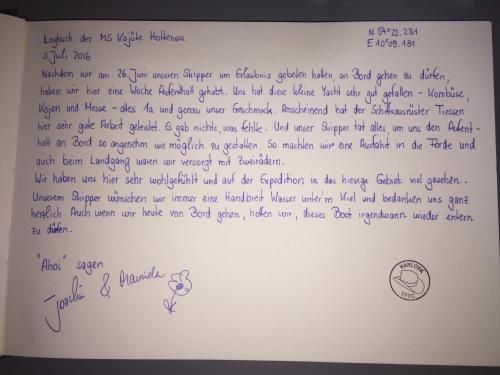 Logbuch der MS Kajüte Holtenau
N 54°22.231
3. Juli 2016
E 10°09.181
Nachdem wir am 26. Juni unseren Skipper um Erlaubnis gebeten hatten, an Bord gehen zu dürfen,
haben wir hier eine Woche Aufenthalt gehabt. Uns hat diese kleine Yacht sehr gut gefallen - Kombüse,
Kojen und Messe - alles 1a und genau unser Geschmack. Anscheinend hat der Schiffsausrüster Tiessen
hier sehr gute Arbeit geleistet. Es gab nichts, was fehlte. Und unser Skipper tat alles, um uns den Aufent-
halt an Bord so angenehm wie möglich zu gestalten. So machten wir eine Ausfahrt in die Förde und
auch beim Landgang waren wir versorgt mit Zweirädern.
Wir haben uns hier sehr wohlgefühlt und auf der Expedition in das hiesige Gebiet viel gesehen.
Unserem Skipper wünschen wir immer eine Handbreit Wasser unter'm Kiel und bedanken uns ganz
herzlich. Auch wenn wir heute von Bord gehen, hoffen wir, dieses Boot irgendwann wieder entern
zu dürfen.
"Ahoi" sagen
Joachim & Manuela
HARLORK
TFTC